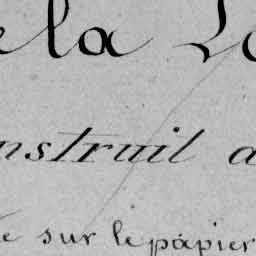 e la Lo
nstruil a
e sur le papier